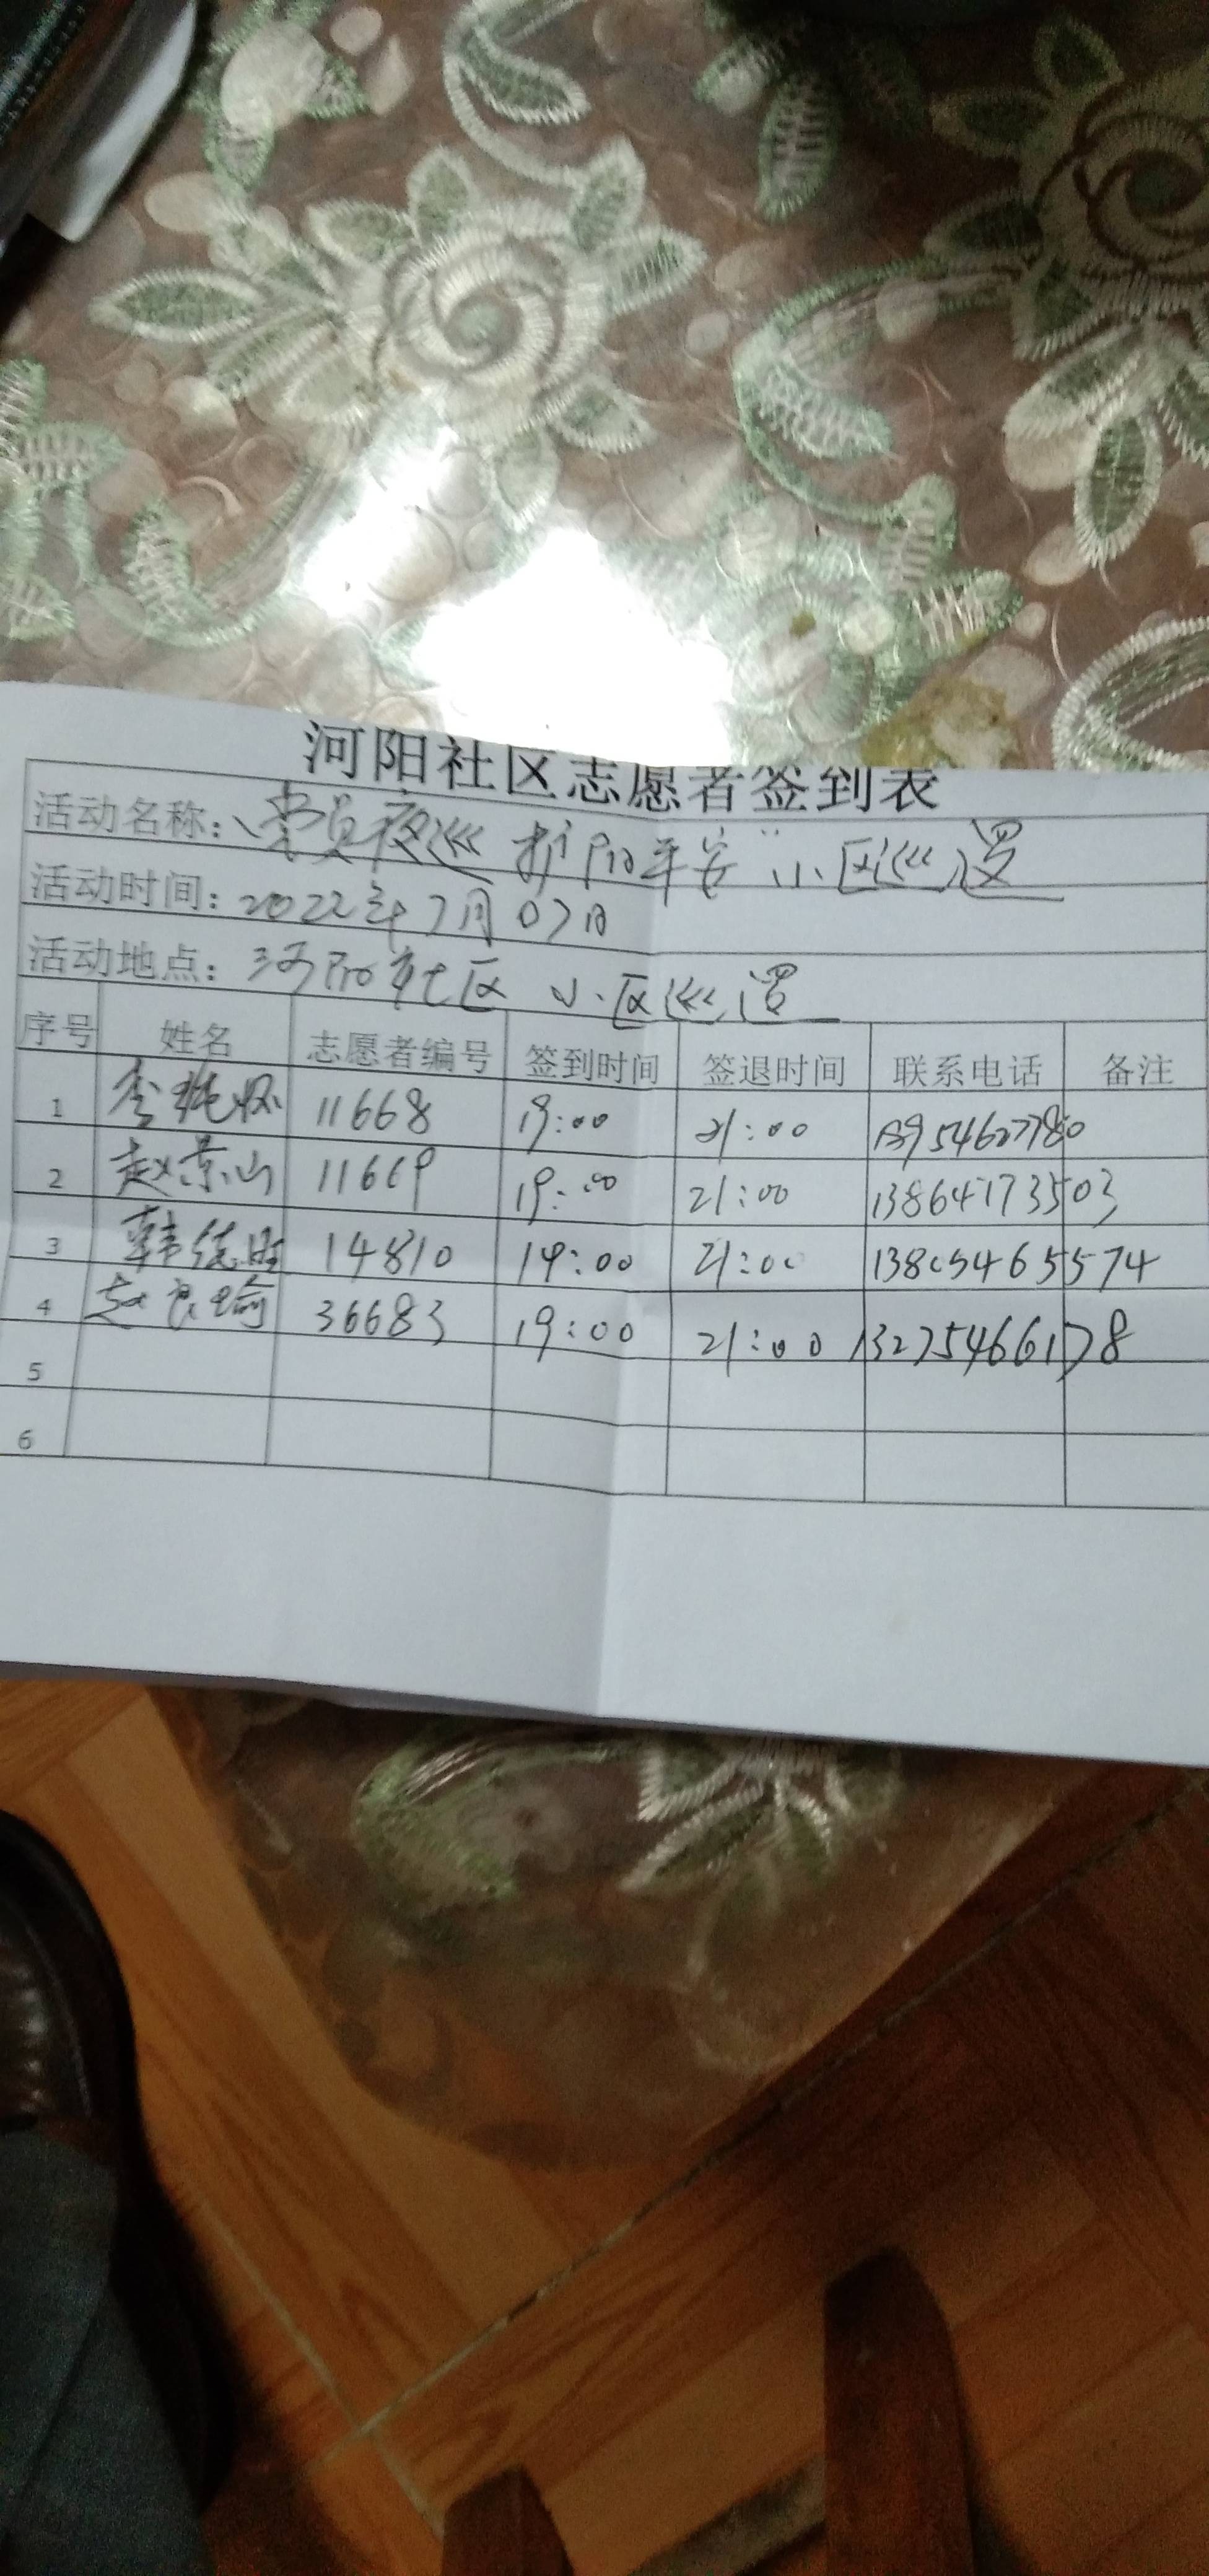 河阳社区志愿者签到表
活动名称：“党员夜巡 护阳平安”小区巡逻
活动时间：2022年7月07日
活动地点：河阳社区 小区巡逻
序号 姓名 志愿者编号 签到时间 签退时间 联系电话 备注
1 李 11668 19:00 21:00 13954627780
2 赵景山 11669 19:00 21:00 13864173503
3 韩 14810 19:00 21:00 13805465574
4 赵良瑜 36683 19:00 21:00 13275466178
5
6